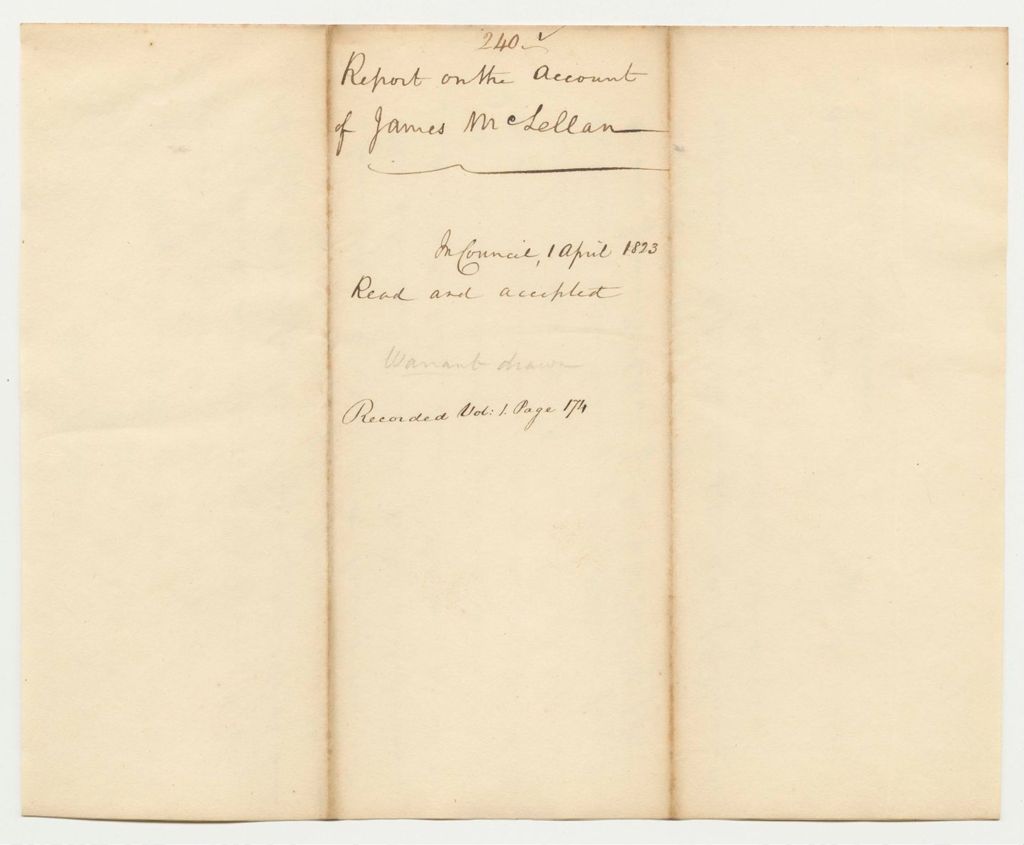 240. ✓
Report on the Account
of James McLellan
In Council, 1 April 1823
Read and accepted
Warrant drawn
Recorded Vol: 1. Page 174